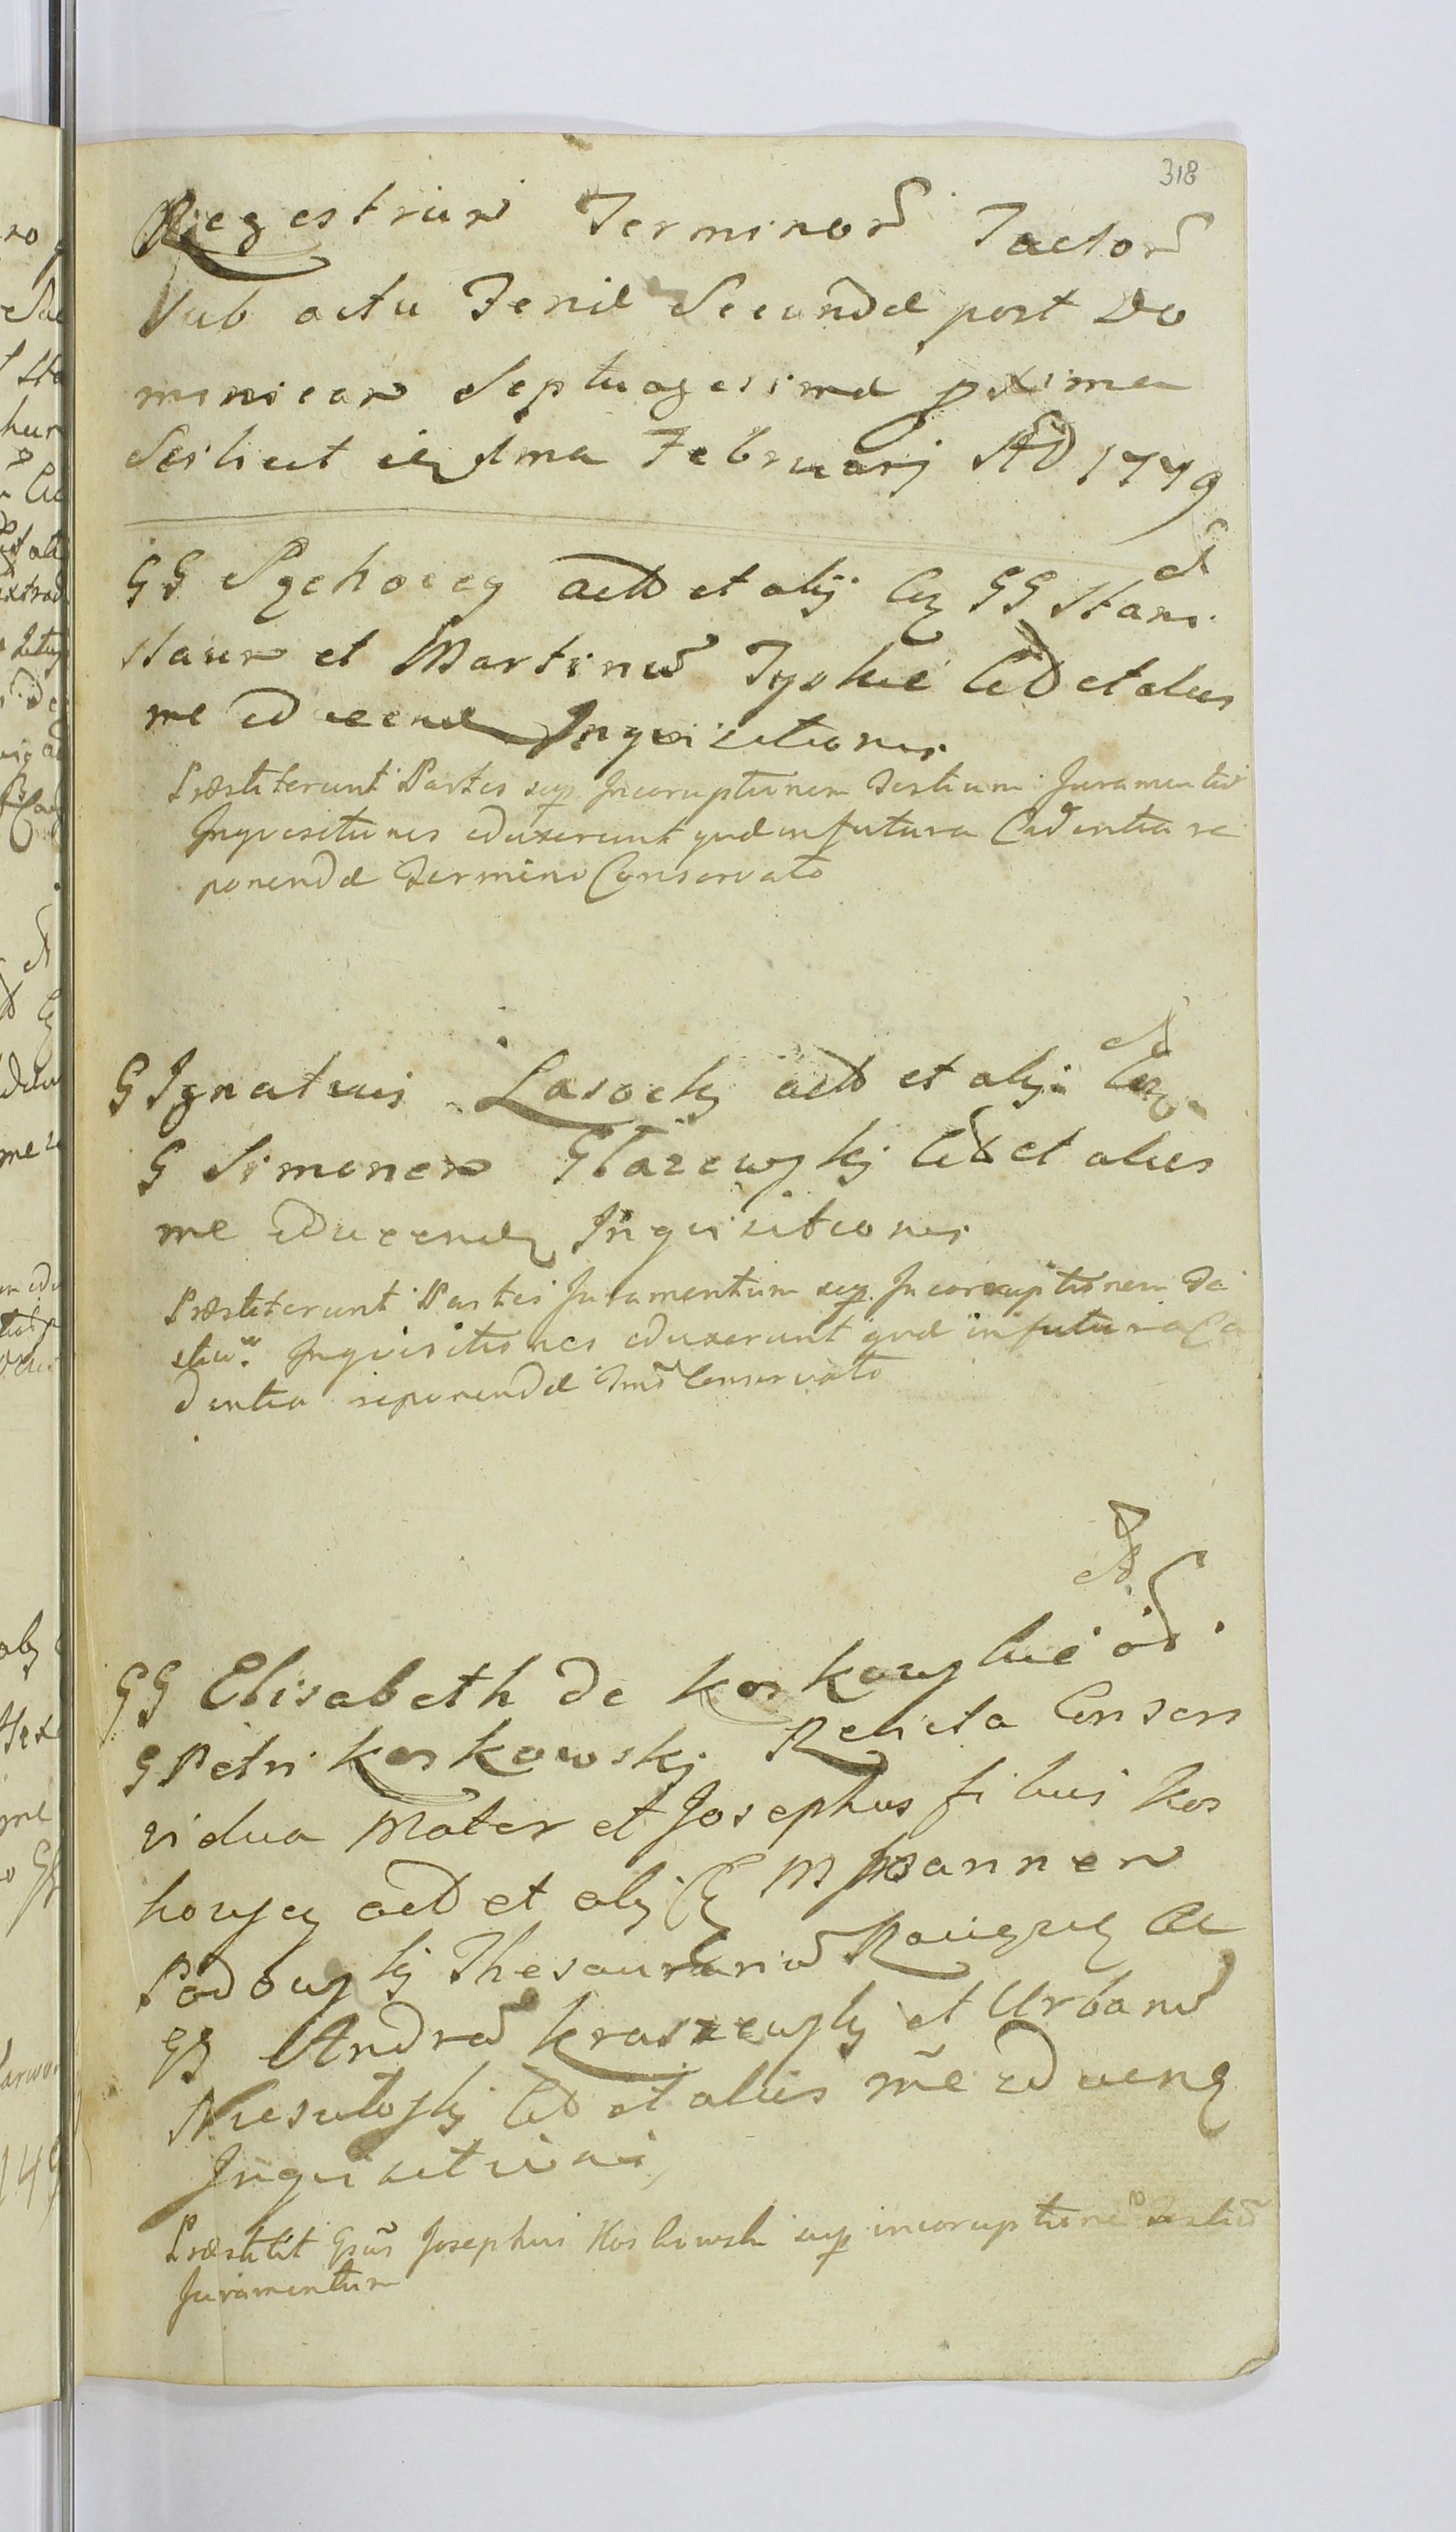 318
Regestrum Terminor Tactor
sub actu Feriæ Secundæ post Do
minicam Septuagesimæ pxima
Scilicet die 1ma Februarij AD 1779
GG Pzchoccy act et alij Cz GG Stani
slaum et Martinu Tyskie Cit et alios
me educend Inqvisitiones
Præstiterunt Partes sup Incoruptionem Testium Juramentu
Inqvisitiones eduxerunt qvæ in futura Cadentia re
ponendæ Termino Conservato
G Ignatius Lasocky act et alij Cz
G Simonem Głazewsky Cit et alios
me educend Inqvisitiones
Præstiterunt Partes Juramentum sup Incoruptionem Te
stium Inqvisitiones eduxerunt qvæ in futura Ca
dentia reponendæ Tmo Conservato
GG Elisabeth de Koskowskie od
G Petri Koskowskj Relicta Consors
vidua Mater et Josephus filius Kos
kowscy act et alij Cz M Joannem
Sadowskj Thesaurariu Ravien Ac
GG Andreu Kraszewskj et Urbanu
Niesułoskj Cit et alios me educend
Inqvisitiones
Præstitit Gsus Josephus Koskowski sup incoruptione Testiu
Juramentum